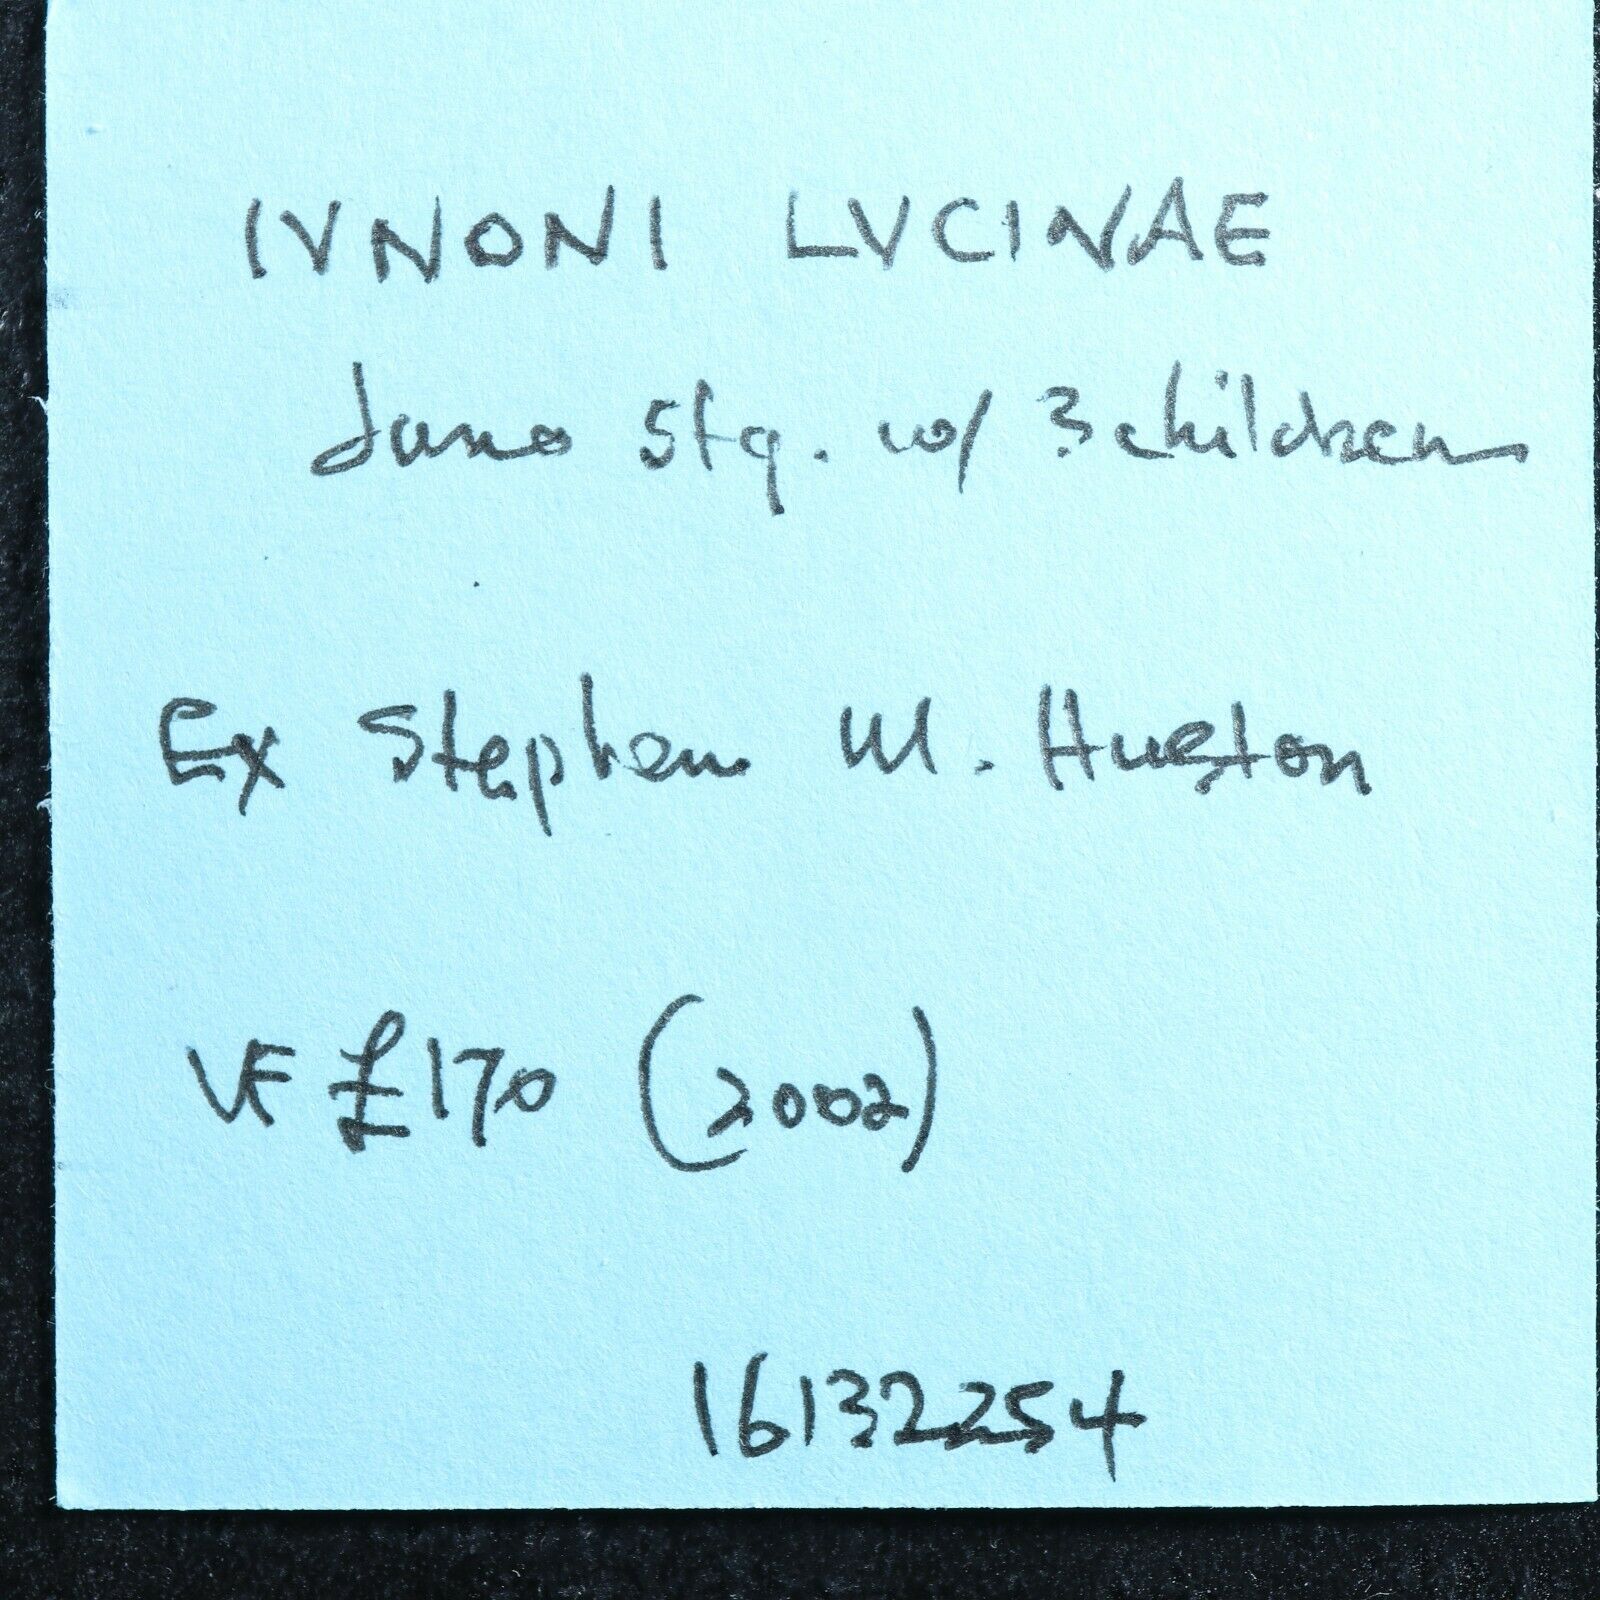 IVNONI LVCINAE
Juno Stg. w/ 3 children
Ex Stephen M. Huston
VF £170 (2002)
16132254